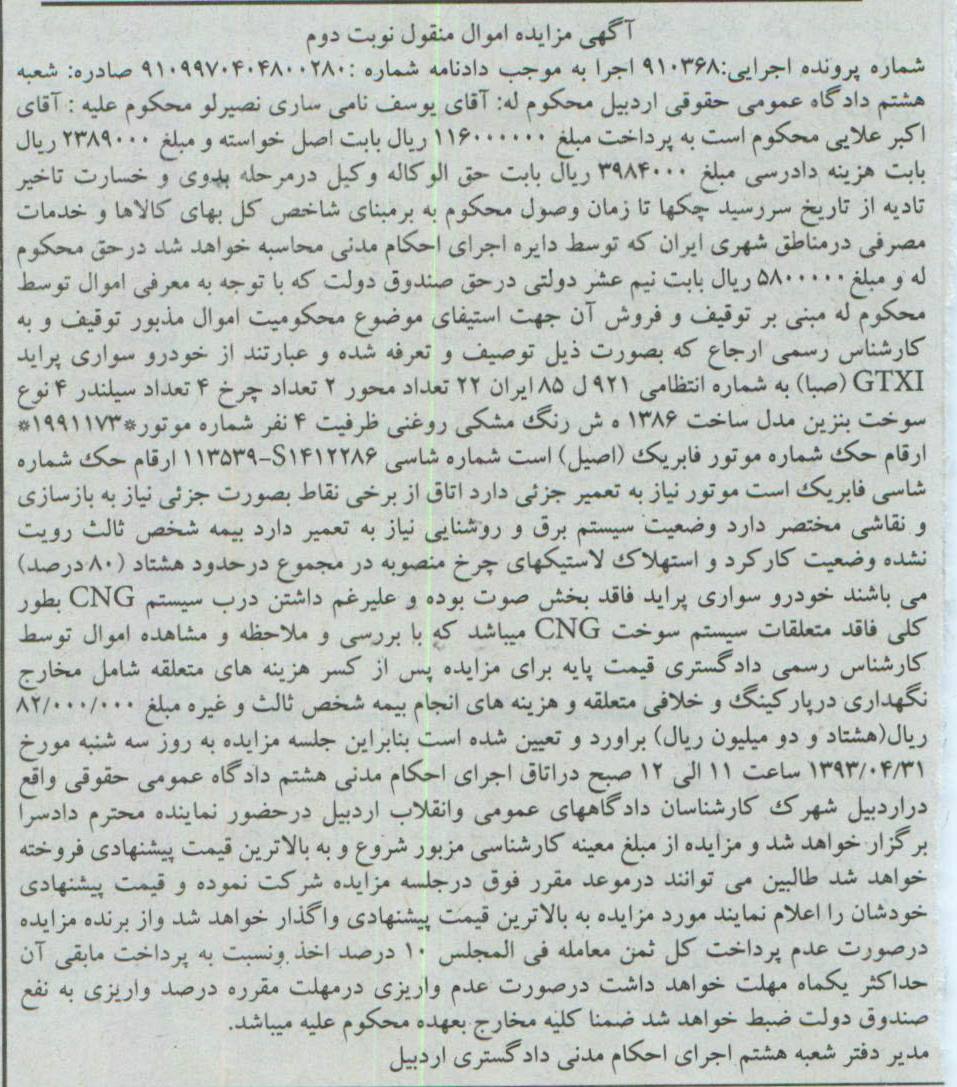 آگهی مزایده اموال منقول نوبت دوم
شماره پرونده اجرایی:۹۱۰۳۶۸ اجرا به موجب دادنامه شماره :۹۱۰۹۹۷۰۴۰۴۸۰۰۲۸۰ صادره: شعبه
هشتم دادگاه عمومی حقوقی اردبیل محکوم له: آقای یوسف نامی ساری نصیرلو محکوم علیه : آقای
اکبر علایی محکوم است به پرداخت مبلغ ۱۱۶۰۰۰۰۰۰ ریال بابت اصل خواسته و مبلغ ۲۳۸۹۰۰۰ ریال
بابت هزینه دادرسی مبلغ ۳۹۸۴۰۰۰ ریال بابت حق الوکاله وکیل درمرحله بدوی و خسارت تاخیر
تادیه از تاریخ سررسید چکها تا زمان وصول محکوم به برمبنای شاخص کل بهای کالاها و خدمات
مصرفی درمناطق شهری ایران که توسط دایره اجرای احکام مدنی محاسبه خواهد شد درحق محکوم
له و مبلغ ۵۸۰۰۰۰۰ ریال بابت نیم عشر دولتی درحق صندوق دولت که با توجه به معرفی اموال توسط
محکوم له مبنی بر توقیف و فروش آن جهت استیفای موضوع محکومیت اموال مذبور توقیف و به
کارشناس رسمی ارجاع که بصورت ذیل توصیف و تعرفه شده و عبارتند از خودرو سواری پراید
GTXI (صبا) به شماره انتظامی ۹۲۱ ل ۸۵ ایران ۲۲ تعداد محور ۲ تعداد چرخ ۴ تعداد سیلندر ۴ نوع
سوخت بنزین مدل ساخت ۱۳۸۶ ه ش رنگ مشکی روغنی ظرفیت ۴ نفر شماره موتور*۱۹۹۱۱۷۳*
ارقام حک شماره موتور فابریک (اصیل) است شماره شاسی S۱۴۱۲۲۸۶-۱۱۳۵۳۹ ارقام حک شماره
شاسی فابریک است موتور نیاز به تعمیر جزئی دارد اتاق از برخی نقاط بصورت جزئی نیاز به بازسازی
و نقاشی مختصر دارد وضعیت سیستم برق و روشنایی نیاز به تعمیر دارد بیمه شخص ثالث رویت
نشده وضعیت کارکرد و استهلاک لاستیکهای چرخ منصوبه در مجموع درحدود هشتاد (۸۰ درصد)
می باشند خودرو سواری پراید فاقد بخش صوت بوده و علیرغم داشتن درب سیستم CNG بطور
کلی فاقد متعلقات سیستم سوخت CNG میباشد که با بررسی و ملاحظه و مشاهده اموال توسط
کارشناس رسمی دادگستری قیمت پایه برای مزایده پس از کسر هزینه های متعلقه شامل مخارج
نگهداری درپارکینگ و خلافی متعلقه و هزینه های انجام بیمه شخص ثالث و غیره مبلغ ۸۲/۰۰۰/۰۰۰
ریال(هشتاد و دو میلیون ریال) براورد و تعیین شده است بنابراین جلسه مزایده به روز سه شنبه مورخ
۱۳۹۳/۰۴/۳۱ ساعت ۱۱ الی ۱۲ صبح دراتاق اجرای احکام مدنی هشتم دادگاه عمومی حقوقی واقع
دراردبیل شهرک کارشناسان دادگاههای عمومی وانقلاب اردبیل درحضور نماینده محترم دادسرا
برگزار خواهد شد و مزایده از مبلغ معینه کارشناسی مزبور شروع و به بالاترین قیمت پیشنهادی فروخته
خواهد شد طالبین می توانند درموعد مقرر فوق درجلسه مزایده شرکت نموده و قیمت پیشنهادی
خودشان را اعلام نمایند مورد مزایده به بالاترین قیمت پیشنهادی واگذار خواهد شد واز برنده مزایده
درصورت عدم پرداخت کل ثمن معامله فی المجلس ۱۰ درصد اخذ ونسبت به پرداخت مابقی آن
حداکثر یکماه مهلت خواهد داشت درصورت عدم واریزی درمهلت مقرره درصد واریزی به نفع
صندوق دولت ضبط خواهد شد ضمنا کلیه مخارج بعهده محکوم علیه میباشد.
مدیر دفتر شعبه هشتم اجرای احکام مدنی دادگستری اردبیل